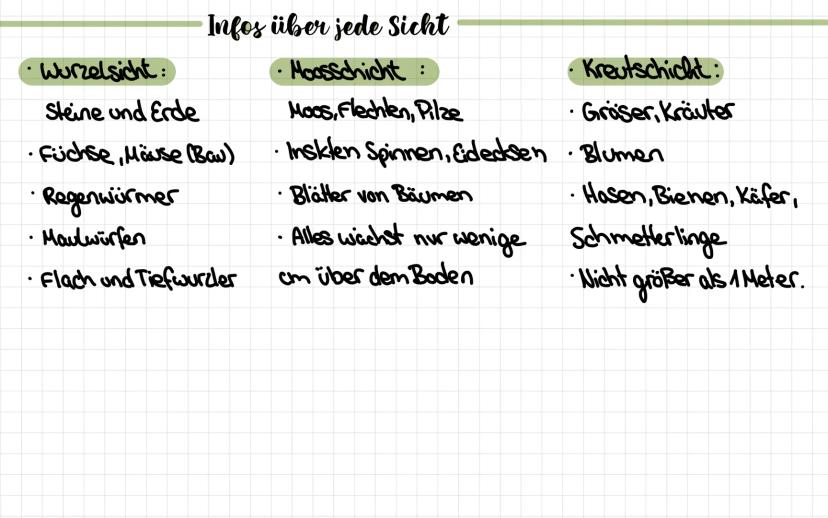 Infos über jede Sicht
· Wurzelsicht:
Steine und Erde
· Füchse, Mäuse (Bau)
· Regenwürmer
· Maulwürfen
· Flach und Tiefwurzler
· Moosschicht :
Moos, Flechten, Pilze
· Inskten Spinnen, Eidechsen
· Blätter von Bäumen
· Alles wächst nur wenige
cm über dem Boden
· Kreutschicht:
· Gräser, Kräuter
· Blumen
· Hasen, Bienen, Käfer,
Schmetterlinge
· Nicht größer als 1 Meter.